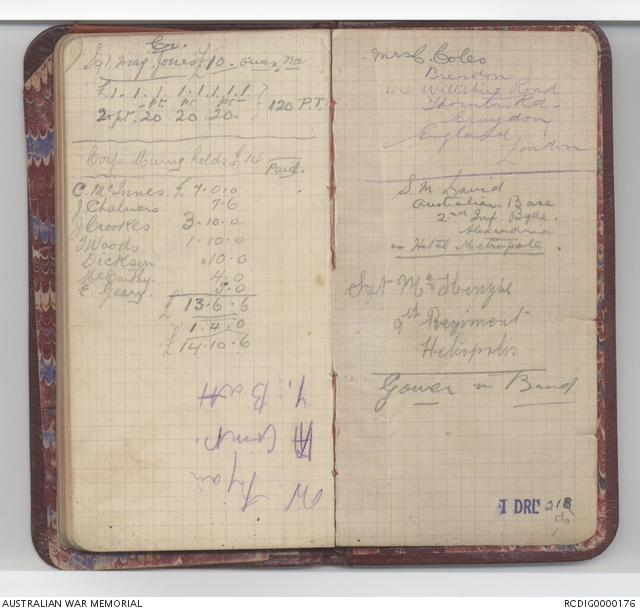 Co.
Sgt Maj Jones £10. Gives Me
£1. 1. 1. 1. 1. 1. 1.
pt. pt. pt.
20pt. 20 20. 20.
120 P.T.
Corp Murry holds £14
Paid.
C. McInnes. £7.0.0
J Chalmers 7-6
J Crookes 3-10-0
T Woods. 1-10.0
Dickson 10.0
McCarthy. 4.0
E Geary. 5.0
£ 13.6.6
1.4.0
£ 14.10.6
Y. Batt
A Comp.
W.
Mrs C. Coles
Brendon
44 Willshire Road
Thornton Rd.
Croydon
England
London
S. M David
Australian Base
2nd Inf. Bgde.
Alexandria
on Hotel Metropole.
Sgt McKenzie
9th Regiment
Heliopolis
Gower in Band
1 DRL 218
AUSTRALIAN WAR MEMORIAL
RCDIG0000176